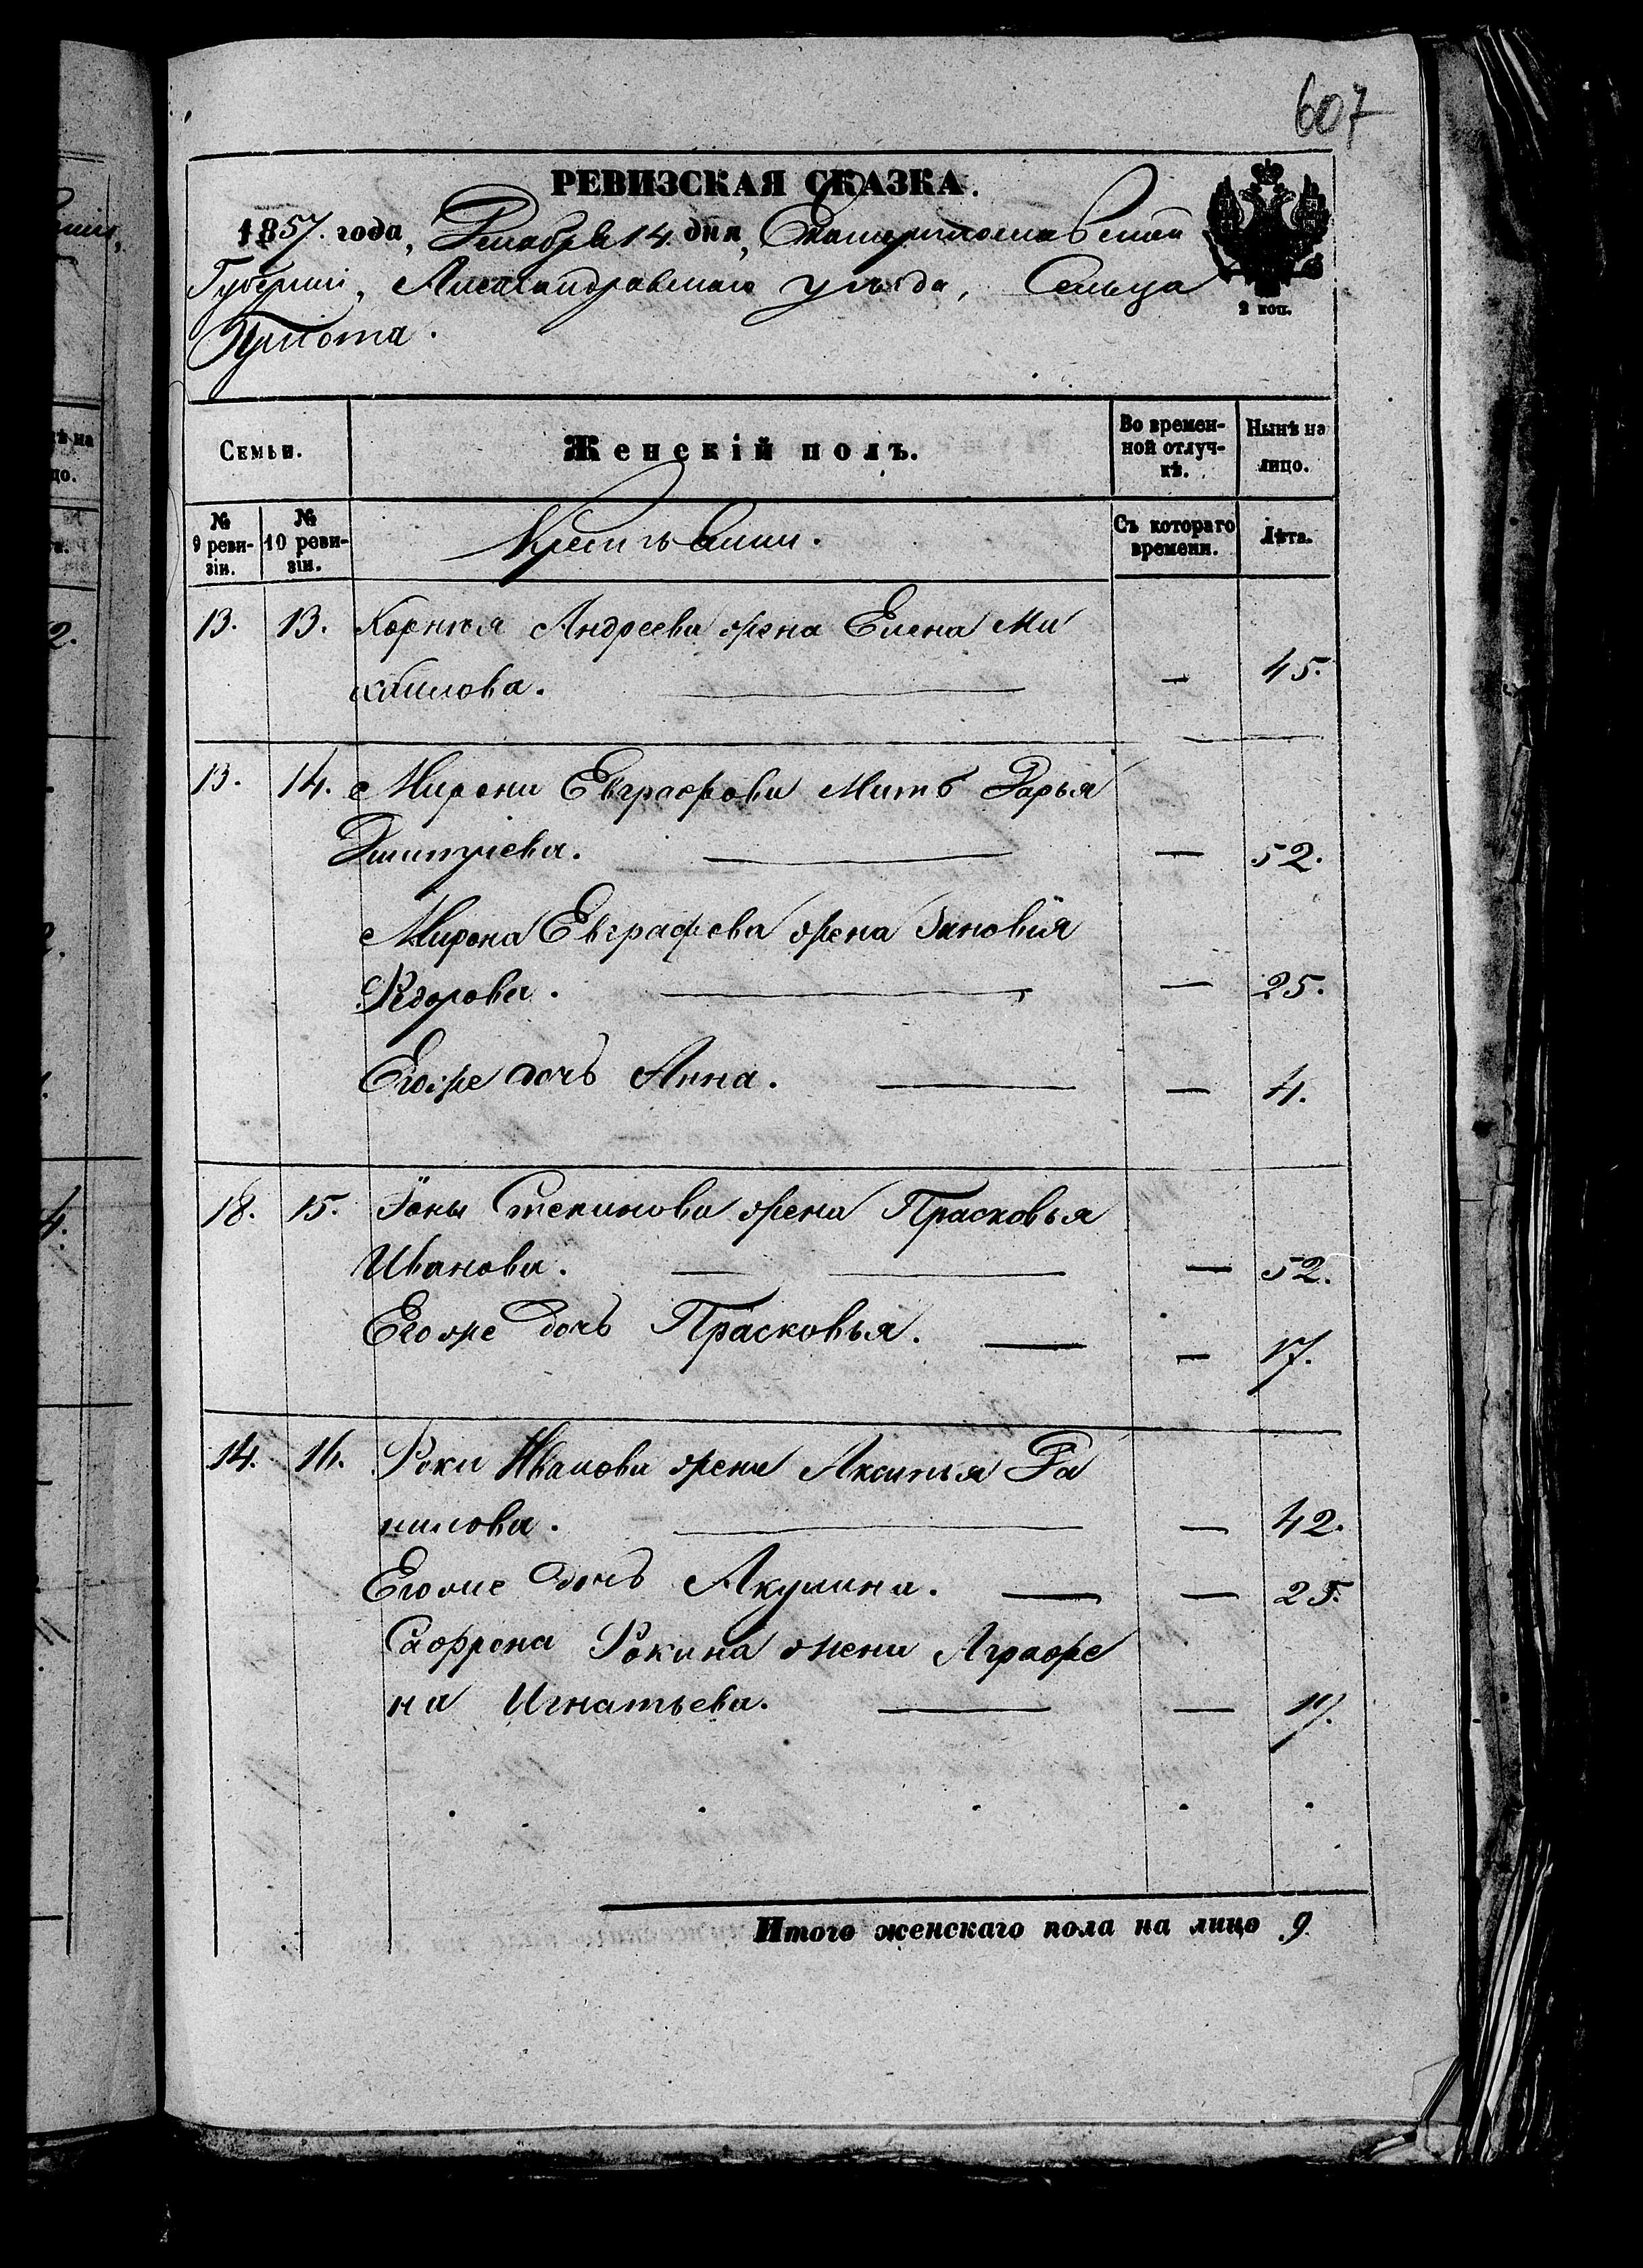 607
РЕВИЗСКАЯ СКАЗКА.
1857. года, Декабря 14. дня, Екатеринославской
Губерніи, Александравскаго уѣзда, Сельца
2 коп.
Семьи.
Женскій полъ.
Во времен-
ной отлуч-
кѣ.
Нынѣ на
лицо.
№
9 реви-
зіи.
№
10 реви-
зіи.
Крестьянии.
Съ котораго
времени.
Лѣта.
13. 13. Корнѣя Андреева жена Елена Ми
хайлова. — 45.
13. 14. Мирона Евграфова Мать Дарья
— 52.
Мирона Евграфова жена Зиновія
Ѳедорова. — 25.
Егоже дочь Анна. — 4.
18. 15. Іоны Степанова жена Прасковья
Иванова. — 52.
Егоже дочь Прасковья. — 17.
14. 16. Ѳоки Иванова жена Аксинья Да
нилова. — 42.
Егоже дочь Акулина. — 25.
Сафрона Ѳокина жена Аграфе
на Игнатьева. — 17.
Итого женскаго пола на лицо 9.